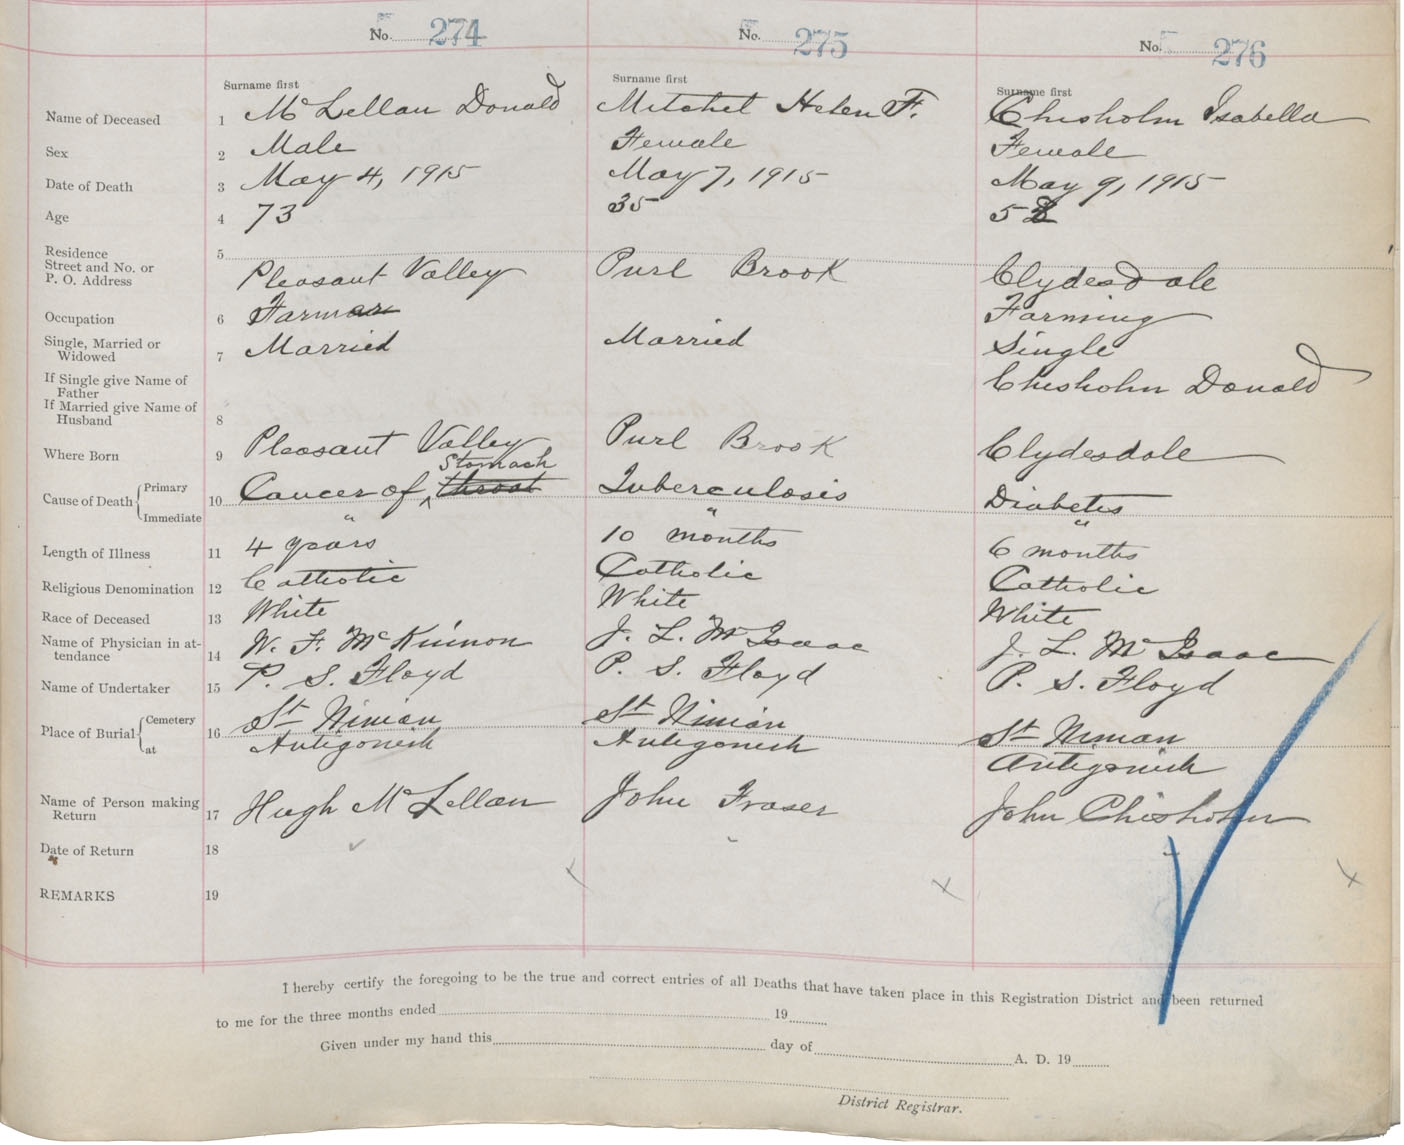 No. 274 No. 275 No. 276
Surname first Surname first Surname first
Name of Deceased 1 McLellan Donald Mitchel Helen F. Chisholm Isabella
Sex 2 Male Female Female
Date of Death 3 May 4, 1915 May 7, 1915 May 9, 1915
Age 4 73 35 52
Residence 5
Street and No. or
P. O. Address Pleasant Valley Purl Brook Clydesdale
Occupation 6 Farmer Farming
Single, Married or
Widowed 7 Married Married Single
If Single give Name of
Father Chisholm Donald
If Married give Name of
Husband 8
Where Born 9 Pleasant Valley Purl Brook Clydesdale
Stomach
Cause of Death { Primary Immediate 10 Cancer of ^ throat Tuberculosis Diabetes
" " "
Length of Illness 11 4 years 10 months 6 months
Religious Denomination 12 Catholic Catholic Catholic
Race of Deceased 13 White White White
Name of Physician in at-
tendance 14 W. F. McKinnon J. L. McIsaac J. L. McIsaac
Name of Undertaker 15 P. S. Floyd P. S. Floyd P. S. Floyd
Place of Burial { Cemetery 16 St Ninian St Ninian St Ninian
at Antigonish Antigonish Antigonish
Name of Person making
Return 17 Hugh McLellan John Fraser John Chisholm
Date of Return 18
REMARKS 19
I hereby certify the foregoing to be the true and correct entries of all Deaths that have taken place in this Registration District and been returned
to me for the three months ended 19
Given under my hand this day of A. D. 19
District Registrar.